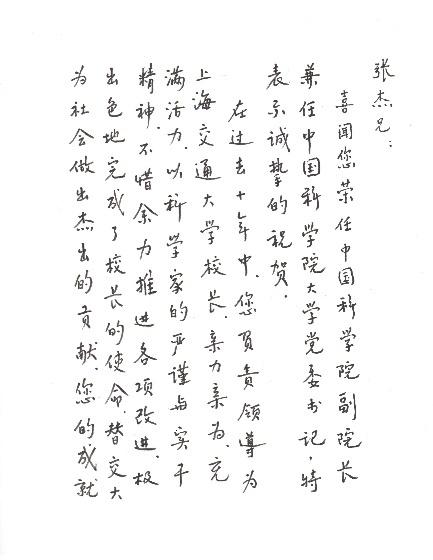 张杰兄：
喜闻您荣任中国科学院副院长
兼任中国科学院大学党委书记，特
表示诚挚的祝贺。
在过去十年中，您领導为
上海交通大学校长，亲力亲为、充
满活力，以科学家的严谨与实干
精神，不惜余力推进各项改进，极
出色地完成了校长的使命，替交大
为社会做出杰出的贡献。您的成就